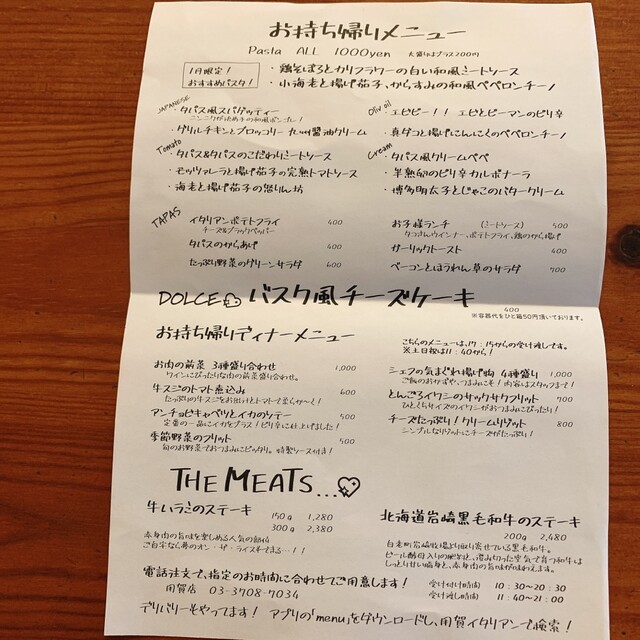 お持ち帰りメニュー
Pasta ALL 1000yen 大盛りはプラス200円
1月限定！
おすすめパスタ！
・鶏そぼろとカリフラワーの白い和風ミートソース
・小海老と揚げ茄子、からすみの和風ペペロンチーノ
JAPANESE
・タパス風スパゲッティー
ニンニクが決め手の和風ボンゴレ！
・グリルチキンとブロッコリー 九州醤油クリーム
Tomato
・タパス&タパスのこだわりミートソース
・モッツァレラと揚げ茄子の完熟トマトソース
・海老と揚げ茄子の怒りん坊
Olive oil
・エビビー！！ エビとピーマンのピリ辛
・真ダコと揚げにんにくのペペロンチーノ
Cream
・タパス風クリームペペ
・半熟卵のピリ辛カルボナーラ
・博多明太子とじゃこのバタークリーム
TAPAS
イタリアンポテトフライ 400
チーズ&ブラックペッパー
タパスのからあげ 400
たっぷり野菜のグリーンサラダ 600
お子様ランチ （ミートソース） 500
タコさんウインナー、ポテトフライ、鶏のから揚げ
ガーリックトースト 400
ベーコンとほうれん草のサラダ 700
DOLCE バスク風チーズケーキ 400
※容器代をひと箱50円頂いております。
お持ち帰りディナーメニュー
こちらのメニューは、17：15からの受け渡しです。
※土日祝は11：40から！
お肉の前菜 3種盛り合わせ 1,000
ワインにぴったりな肉の前菜盛り合わせ。
牛スジのトマト煮込み 600
たっぷりの牛スジをお出汁とトマトで柔らか〜く！
アンチョビキャベツとイカのソテー 500
定番の一品にイカをプラス！ピリ辛に仕上げました！
季節野菜のフリット 500
旬のお野菜でおつまみにピッタリ。特製ソース付き！
シェフの気まぐれ揚げ物 4種盛り 1,000
ご飯のおかずや、つまみにも！内容はスタッフまで！
とんごろイワシのサックサクフリット 700
ひとくちサイズのイワシがおつまみにぴったり！
チーズたっぷり！クリームリゾット 800
シンプルなリゾットにチーズがたっぷり！
THE MEATS...
牛ハラミのステーキ
150g 1,280
300g 2,380
赤身肉の旨味を楽しめる人気の部位
ご自宅なら夢のオン・ザ・ライスもできる…！！
北海道岩崎黒毛和牛のステーキ
200g 2,480
白老町岩崎牧場より取り寄せている黒毛和牛。
ビール酵母入りの肥料と、澄み切った空気で育つ和牛は
しっとり甘い脂身と、赤身肉の旨味が味わえます。
電話注文で、指定のお時間に合わせてご用意します！
用賀店 03-3708-7034
受け付け時間 10：30〜20：30
受け渡し時間 11：40〜21：00
デリバリーもやってます！ アプリの「menu」をダウンロードし、用賀イタリアンで検索！